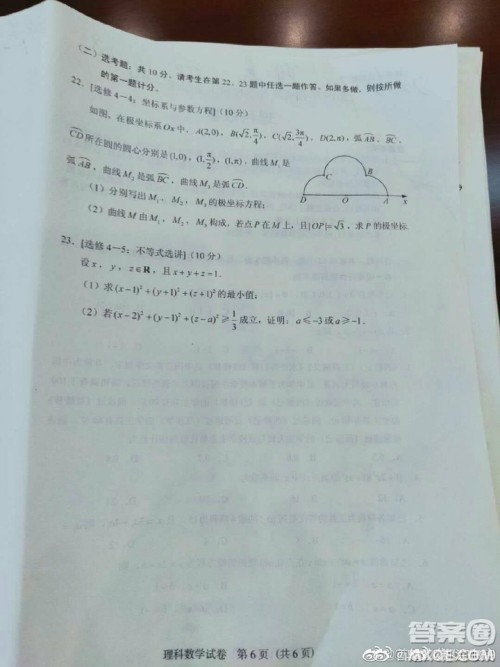 （二）选考题：共 10 分．请考生在第 22、23 题中任选一题作答．如果多做，则按所做
的第一题计分．
22．[选修 4－4：坐标系与参数方程]（10 分）
如图，在极坐标系 Ox 中，A(2,0)，B(√2, π/4)，C(√2, 3π/4)，D(2,π)，弧 AB，BC，
CD 所在圆的圆心分别是(1,0)，(1, π/2)，(1,π)，曲线 M₁ 是
弧 AB，曲线 M₂ 是弧 BC，曲线 M₃ 是弧 CD．
C B
D O A x
（1）分别写出 M₁、M₂、M₃ 的极坐标方程；
（2）曲线 M 由 M₁、M₂、M₃ 构成，若点 P 在 M 上，且|OP|=√3，求 P 的极坐标．
23．[选修 4－5：不等式选讲]（10 分）
设 x，y，z∈R，且 x+y+z=1．
（1）求(x−1)²+(y+1)²+(z+1)² 的最小值；
（2）若(x−2)²+(y−1)²+(z−a)²≥1/3 成立，证明：a≤−3 或 a≥−1．
理科数学试卷 第 6 页（共 6 页）
答案圈
MXQE.COM